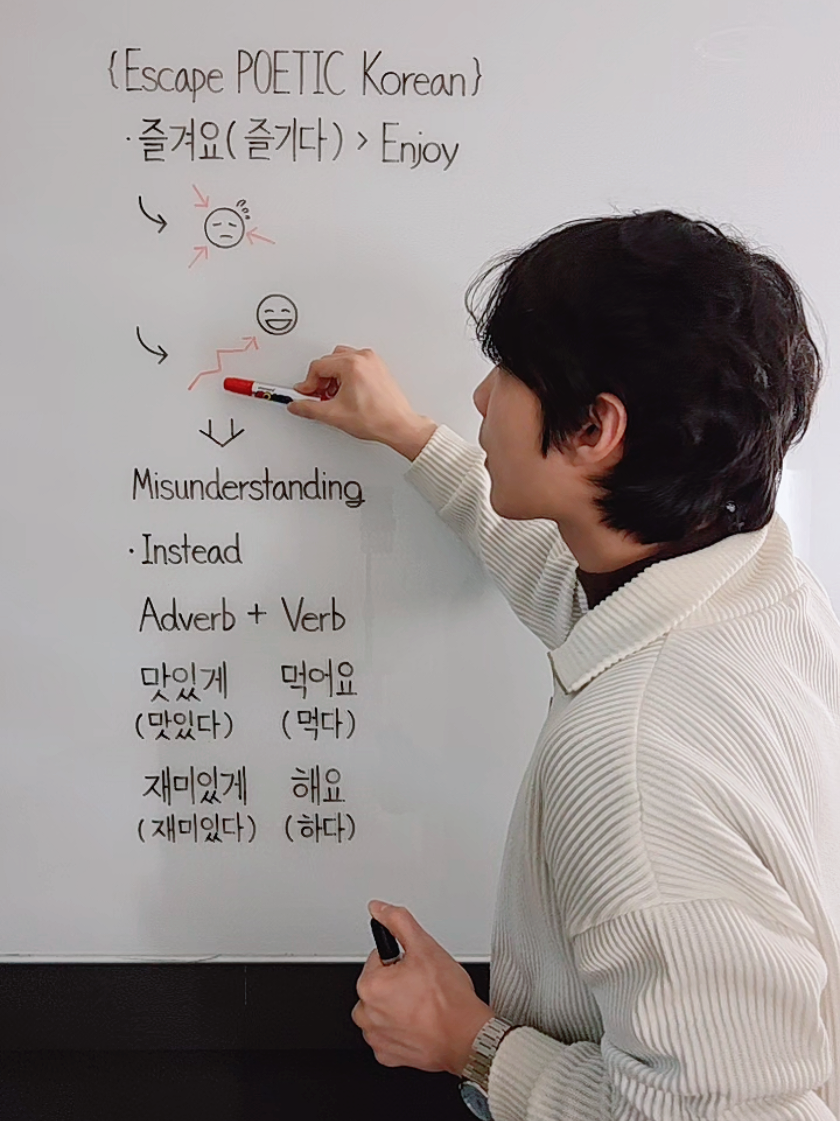 {Escape POETIC Korean}
· 즐겨요(즐기다) > Enjoy
Misunderstanding
· Instead
Adverb + Verb
맛있게 먹어요
(맛있다) (먹다)
재미있게 해요
(재미있다) (하다)